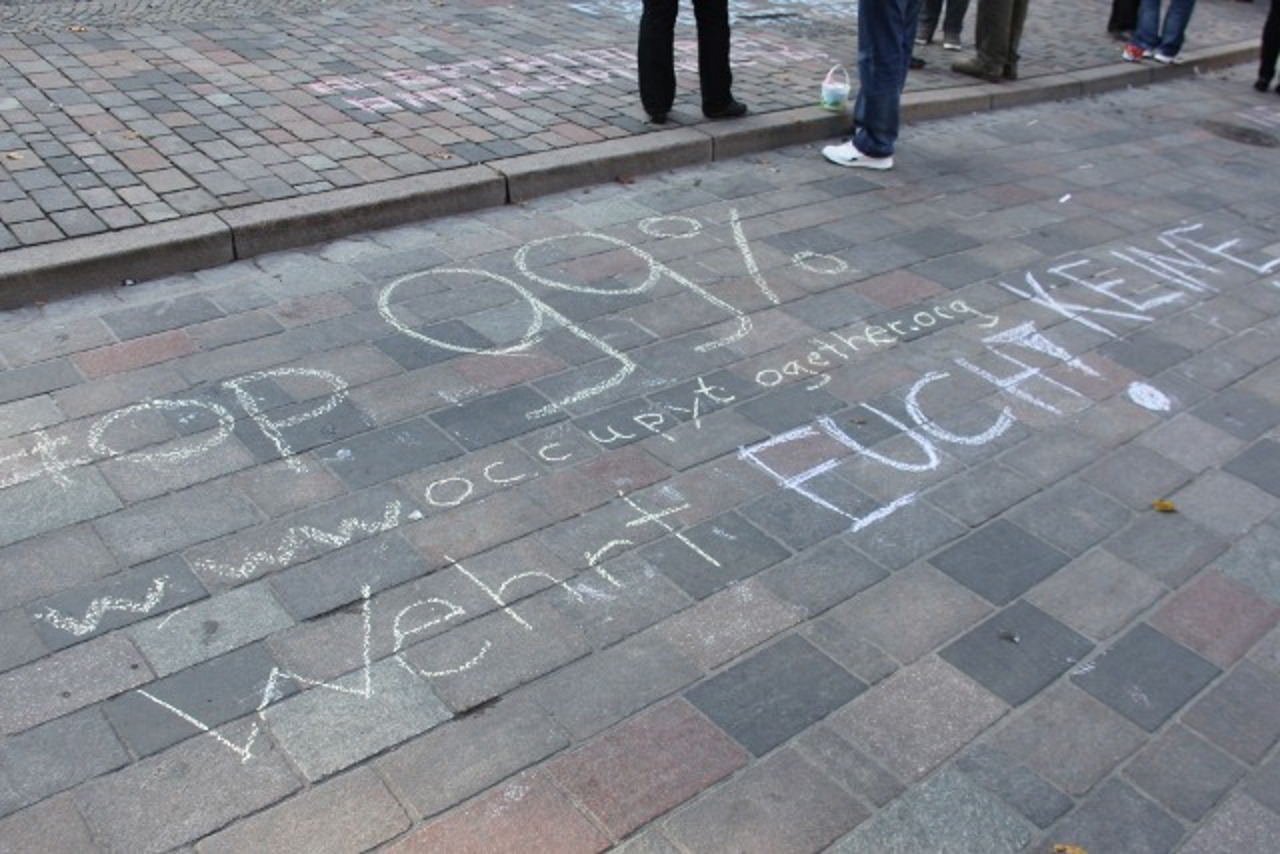 top 99%
www.occupytogether.org KEINE
Wehrt EUCH!